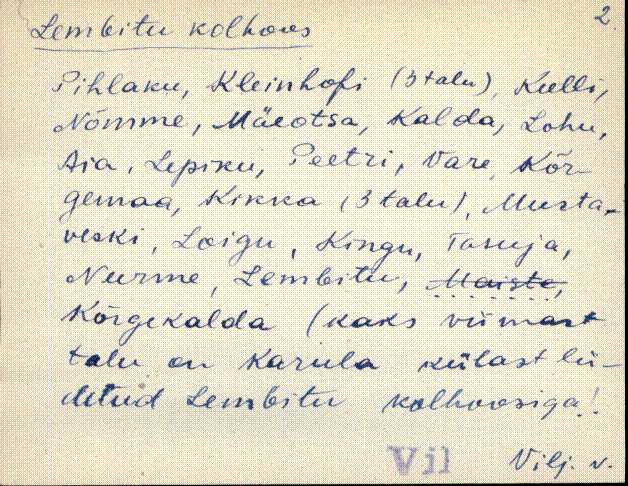 2.
Lembitu kolhoos
Pihlaku, Kleinhofi (3 talu), Kulli,
Nõmme, Mäeotsa, Kalda, Lohu,
Aia, Lepiku, Peetri, Vare, Kõr-
gemaa, Kikka (3 talu), Musta-
veski, Loigu, Kingu, Tasuja,
Nurme, Lembitu, Maiste,
Kõrgekalda (kaks viimast
talu on Karula külast lii-
detud Lembitu kolhoosiga!
Vil Vilj. v.